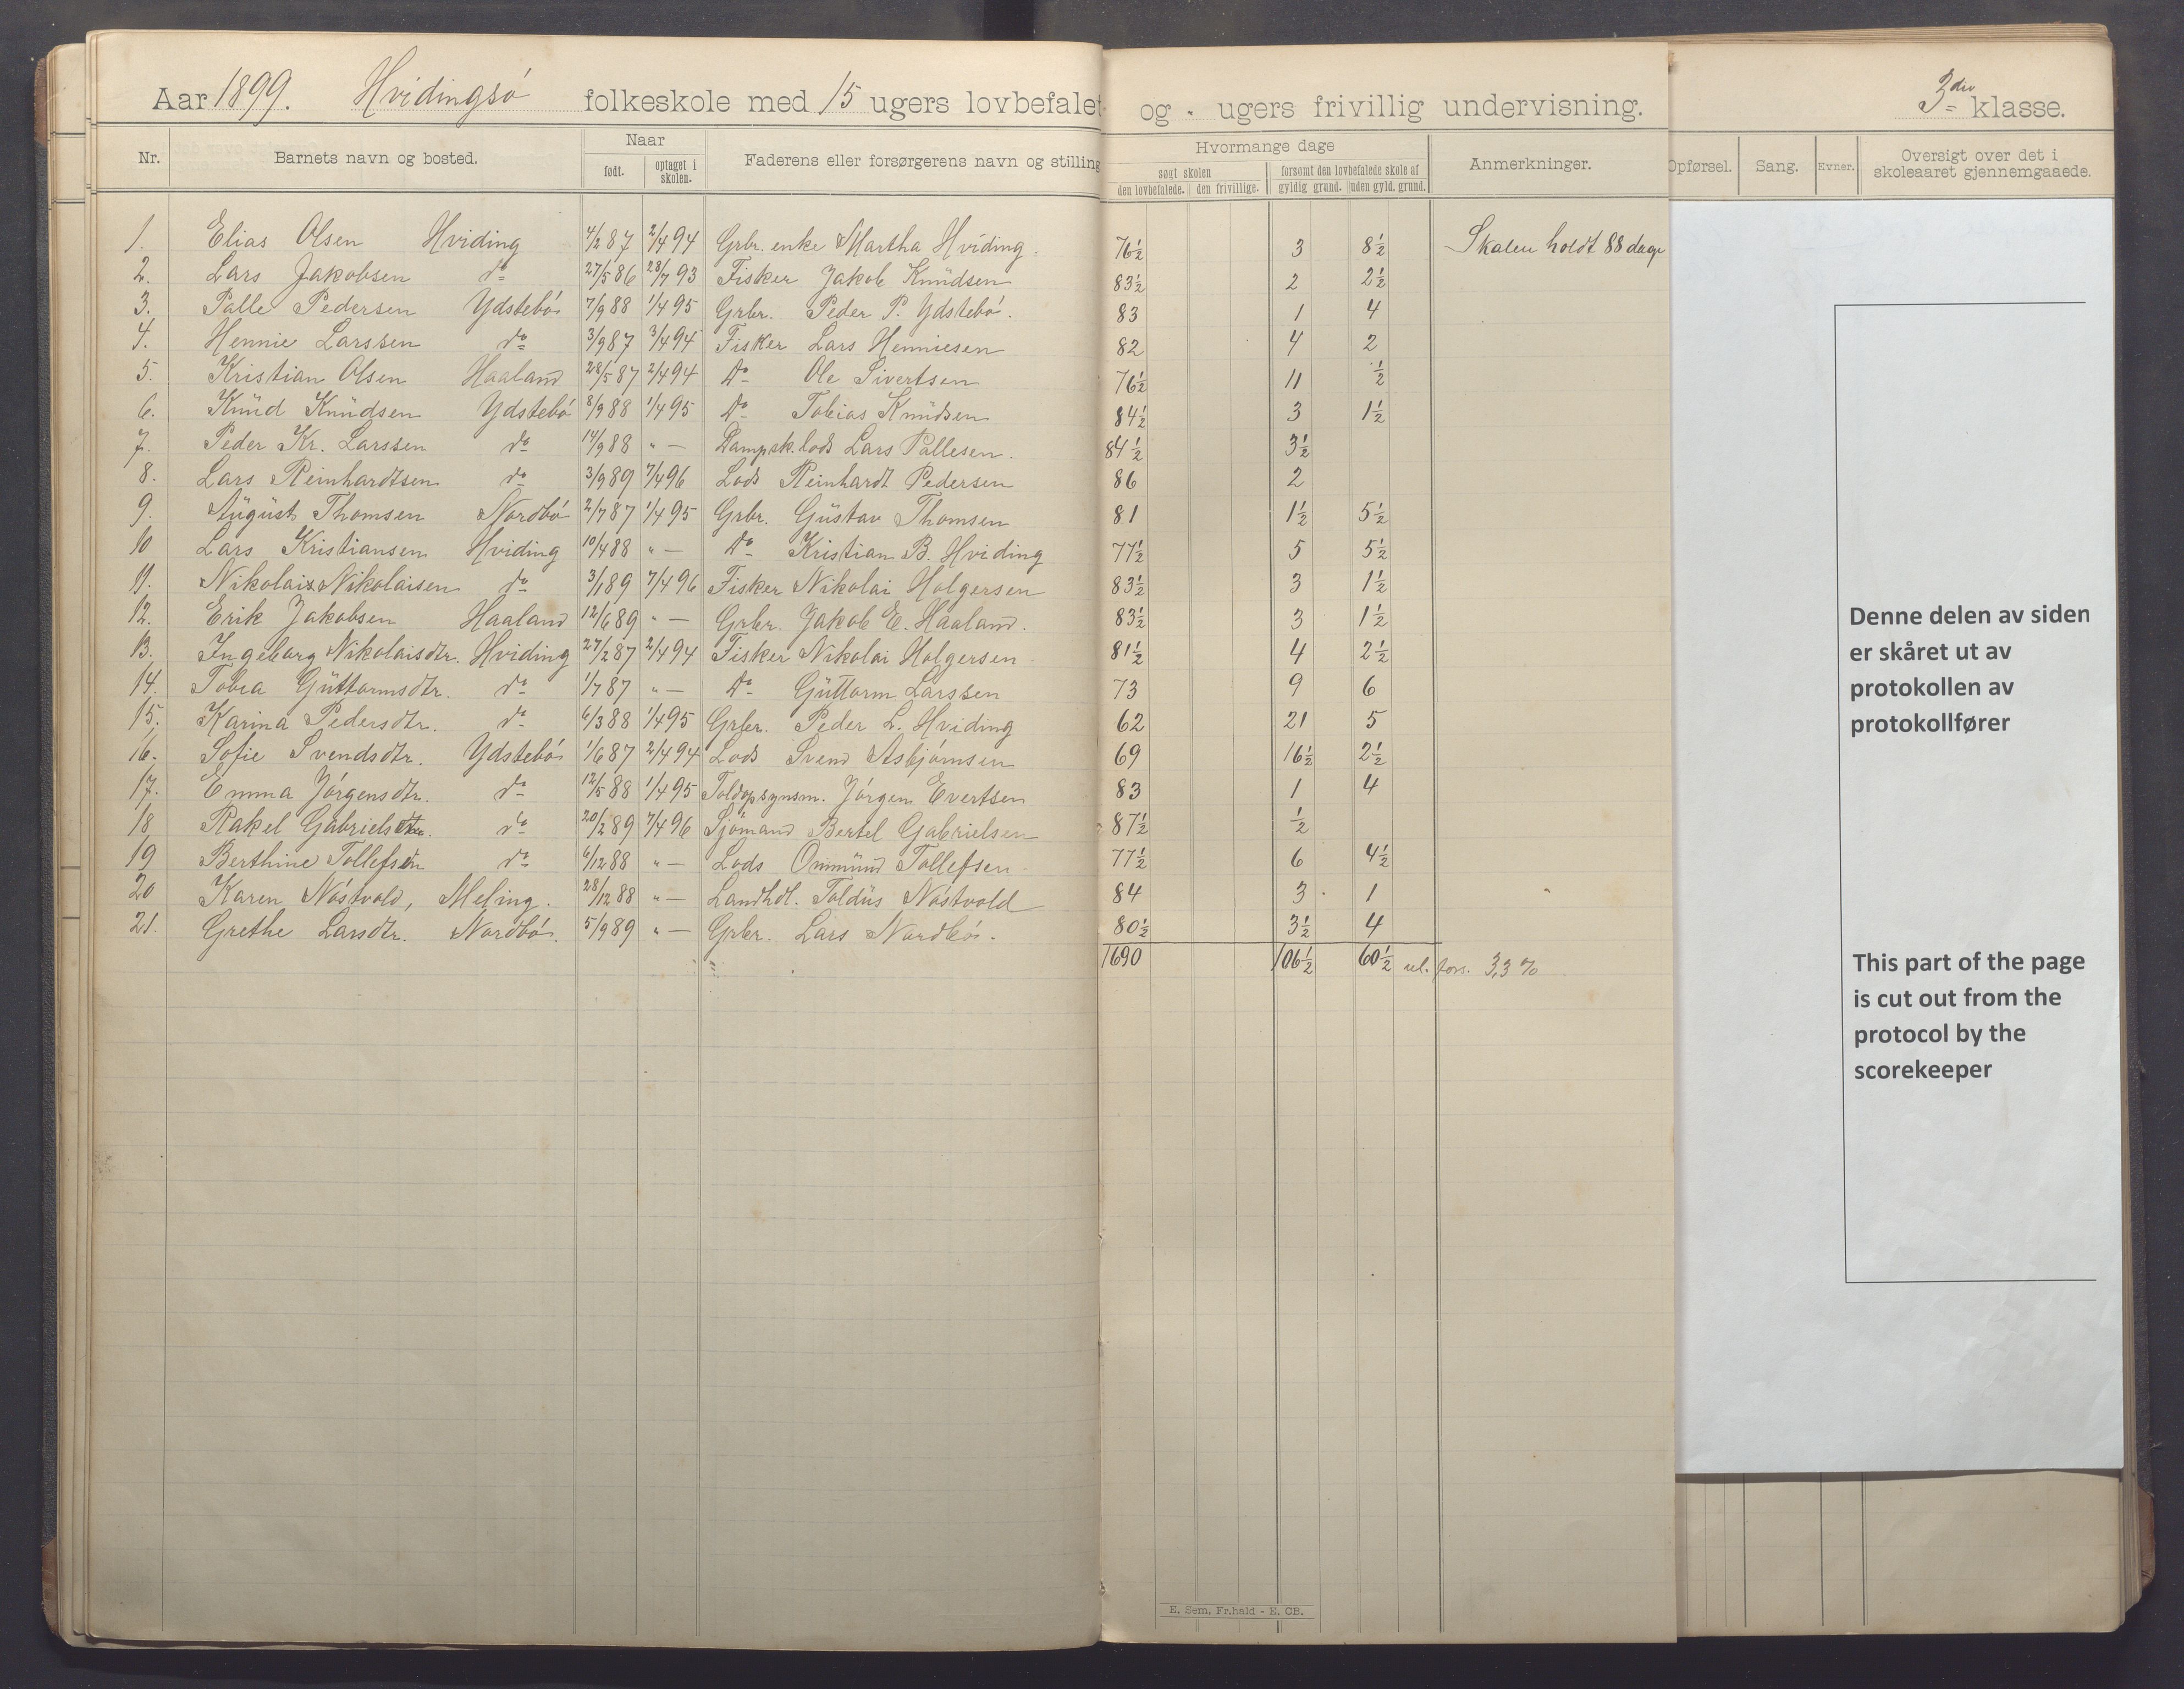 Aar 1899. Hvidingsö folkeskole med 15 ugers lovbefalet og - ugers frivillig undervisning. 3die klasse.
Nr. Barnets navn og bosted. Naar født. optaget i skolen. Faderens eller forsørgerens navn og stilling Hvormange dage søgt skolen den lovbefalede. den frivillige. forsømt den lovbefalede skole af gyldig grund. uden gyld. grund. Anmerkninger. Opførsel. Sang. Evner. Oversigt over det i skoleaaret gjennemgaaede.
1. Elias Olsen Hviding 4/2 87 2/4 94 Grbr. enke Martha Hviding. 76½ 3 8½ Skolen holdt 88 dage
2. Lars Jakobsen do 27/5 86 28/7 93 Fisker Jakob Knudsen 83½ 2 2½
3. Palle Pedersen Ydstebö 7/9 88 1/4 95 Grbr. Peder P. Ydstebö. 83 1 4
4. Hennie Larssen do 3/9 87 3/4 94 Fisker Lars Henniesen 82 4 2
5. Kristian Olsen Haaland 28/5 87 2/4 94 Do Ole Sivertsen 76½ 11 ½
6. Knud Knudsen Ydstebö 8/9 88 1/4 95 Do Tobias Knudsen 84½ 3 1½
7. Peder Kr. Larssen do 14/9 88 " — Dampsk. lods Lars Pallesen. 84½ 3½
8. Lars Reinhardtsen do 3/9 89 7/4 96 Lods Reinhardt Pedersen 86 2
9. August Thomsen Nordbö 2/7 87 1/4 95 Grbr. Gustav Thomsen 81 1½ 5½
10 Lars Kristiansen Hviding 10/4 88 " — Do Kristian B. Hviding 77½ 5 5½
11. Nikolai Nikolaisen do 3/1 89 7/4 96 Fisker Nikolai Holgersen 83½ 3 1½
12. Erik Jakobsen Haaland 12/6 89 " — Grbr. Jakob E. Haaland. 83½ 3 1½
13. Ingeborg Nikolaisdtr. Hviding 27/2 87 2/4 94 Fisker Nikolai Holgersen 81½ 4 2½
14. Tobea Guttormsdtr. do 1/7 87 " — Do Guttorm Larssen 73 9 6
15. Karina Pedersdtr. do 6/3 88 1/4 95 Grbr. Peder L. Hviding 62 21 5
16. Sofie Svendsdtr. Ydstebö 1/6 87 2/4 94 Lods Svend Asbjörnsen 69 16½ 2½
17. Emma Jörgensdtr. do 12/5 88 1/4 95 Toldopsynsm. Jörgen Evertsen 83 1 4
18 Rakel Gabrielsdtr. do 20/2 89 7/4 96 Sjömand Bertel Gabrielsen 87½ ½
19 Berthine Tollefsen do 6/12 88 " — Lods Ommund Tollefsen 77½ 6 4½
20 Karen Nöstvold, Meling. 28/12 88 " — Landhdl. Toldus Nöstvold 84 3 1
21. Grethe Larsdtr. Nordbö. 5/9 89 " — Grbr. Lars Nordbö. 80½ 3½ 4
1690 106½ 60½ ul. fors. 3,3 %
Denne delen av siden
er skåret ut av
protokollen av
protokollfører
This part of the page
is cut out from the
protocol by the
scorekeeper
E. Sem, Fr.hald - E. CB.